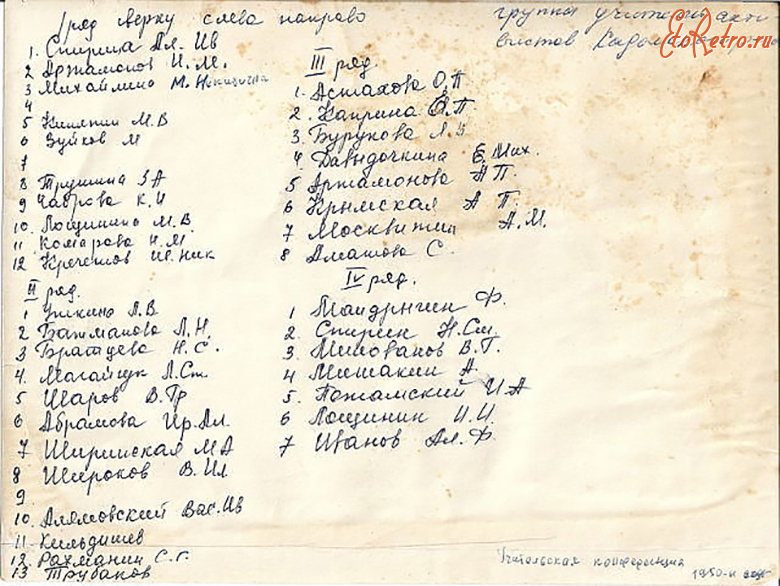 I ряд сверху слева направо
1. Спирина Ал. Ив
2 Артамонов И. М.
3 Михайлина М. Никитична
4
5 Кияткин М. В
6 Зуйков М
7
8 Трушина З А
9 Чаброва К. И
10. Лощинина М. В.
11 Комарова Н. М.
12 Кречетов Ш. Ник
II ряд.
1. Уткина Л. В
2 Батманова Л. Н.
3 Братцева Н. С.
4. Магайчук Л. Ст.
5 Шаров В. Гр
6 Абрамова Ир. Ал.
7 Ширинская М А
8 Широков В. Ил
9
10. Алямовский Вас. Ив
11. Кильдишев
12. Рахманин С. г.
13 Трубаков
группа учителей
EtoRetro.ru
III ряд
1. Астахова О. П
2. Каприна Е. П
3. Бурукова Л. В
4. Давыдочкина Е. Мих.
5 Артамонова А П.
6 Крымская А Г.
7 Москвитин А. М.
8 Алматова С.
IV ряд.
1 Мандрыгин Ф.
2. Спирин Н. См.
3. Милованов В. Г.
4 Мишакин А.
5. Потамский И. А
6 Лощинин И. И.
7 Иванов Ал. Ф.
Учительская конференция
1950-и